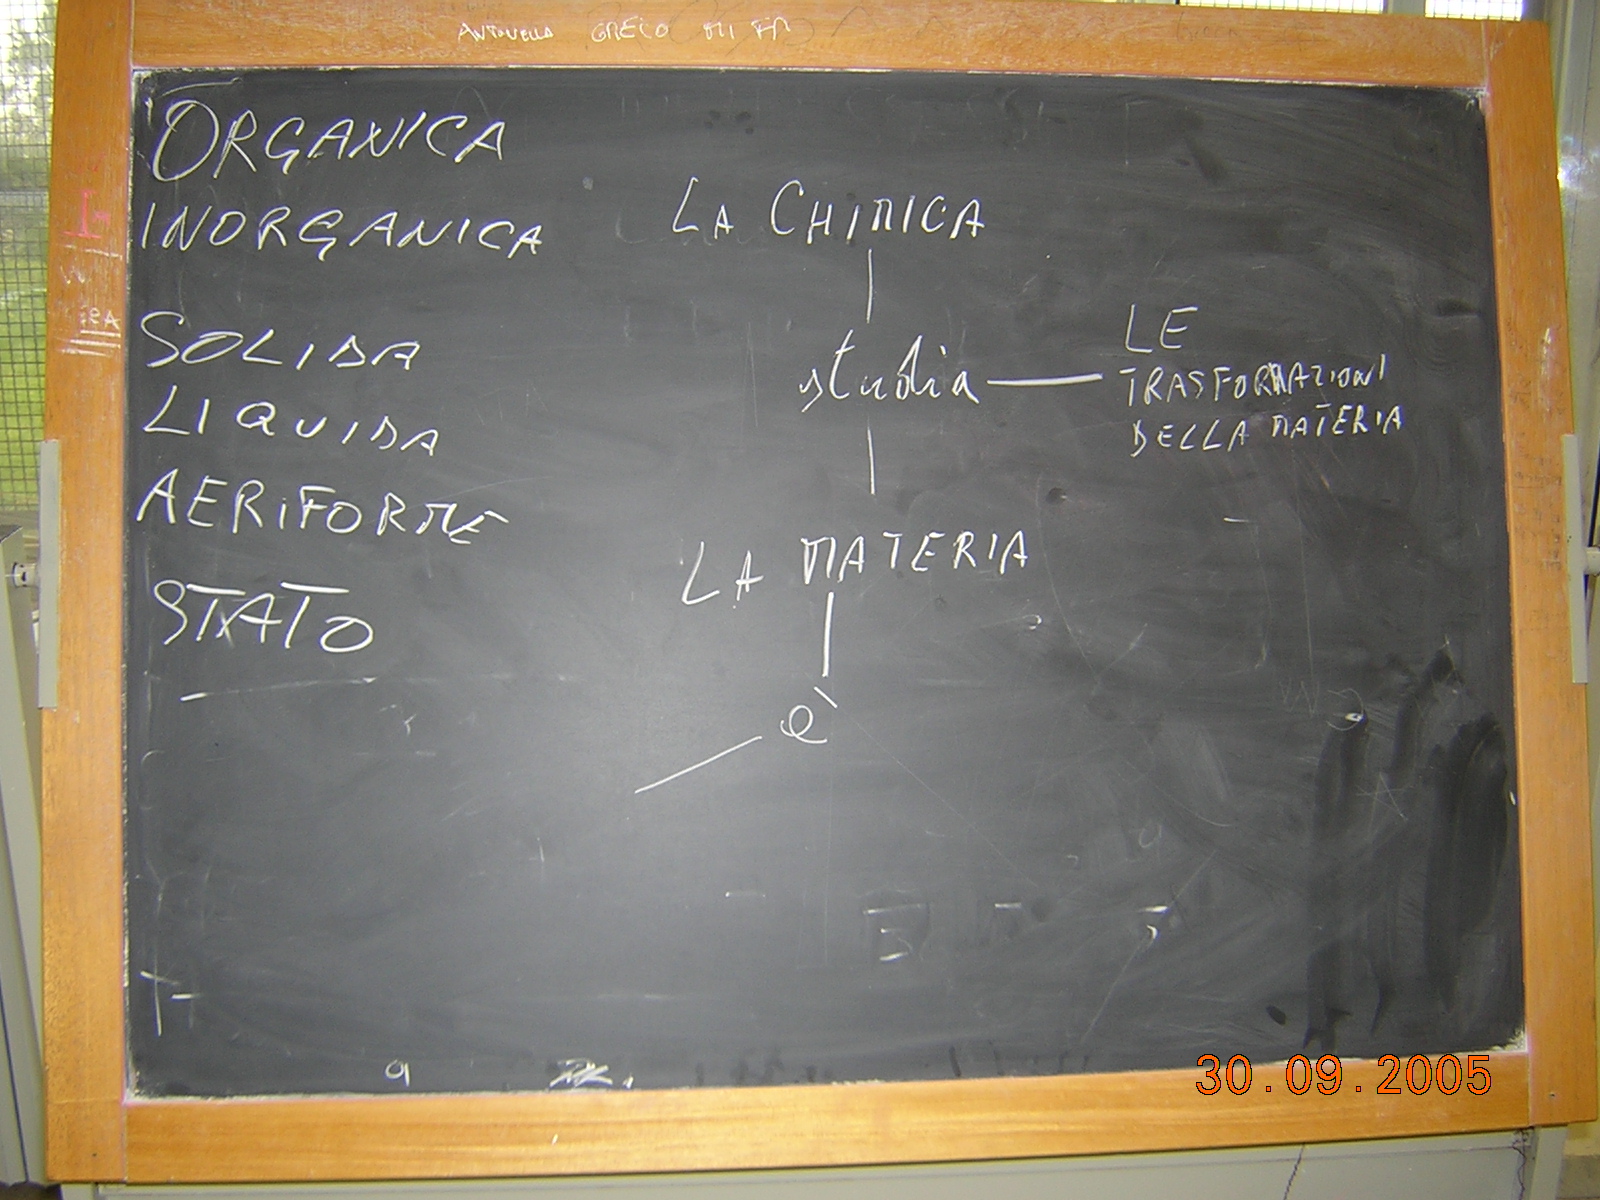 ANTONELLA GRECO
ORGANICA
INORGANICA
SOLIDA
LIQUIDA
AERIFORME
STATO
LA CHIMICA
studia
LE
TRASFORMAZIONI
DELLA MATERIA
LA MATERIA
è
30.09.2005